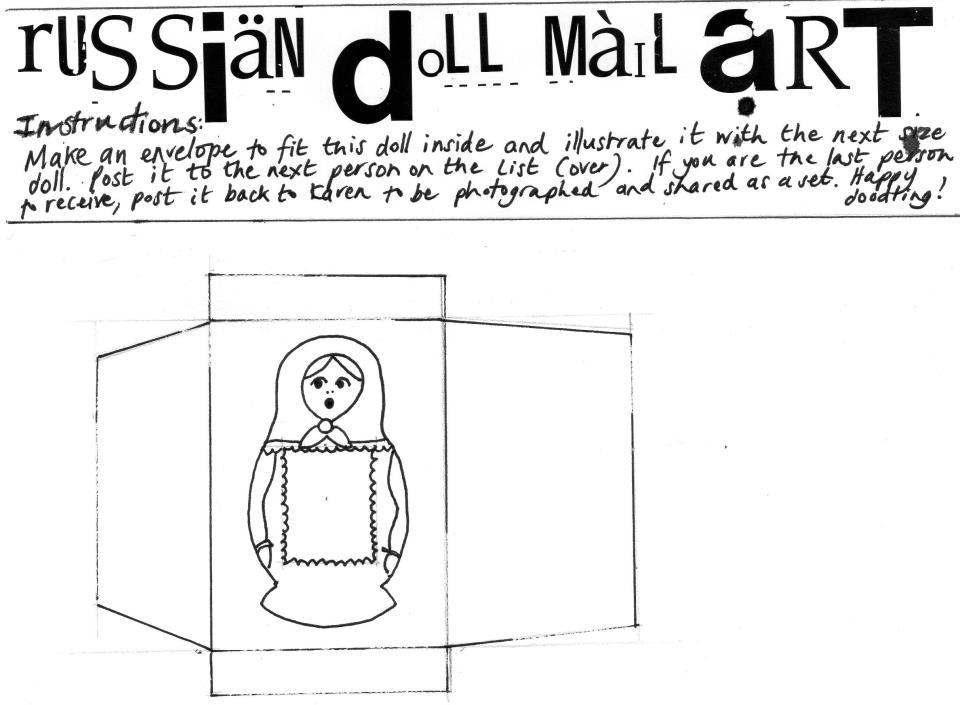 rUSSiäN doLL MàIL aRT
Instructions:
Make an envelope to fit this doll inside and illustrate it with the next size
doll. Post it to the next person on the List (over). If you are the last person
to receive, post it back to Karen to be photographed and shared as a set. Happy
doodling!